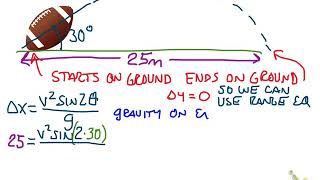 30°
25m
STARTS ON GROUND ENDS ON GROUND
Δy=0 SO WE CAN
USE RANGE EQ
Δx= v² sin 2θ
g
GRAVITY ON
25= v² sin(2·30)